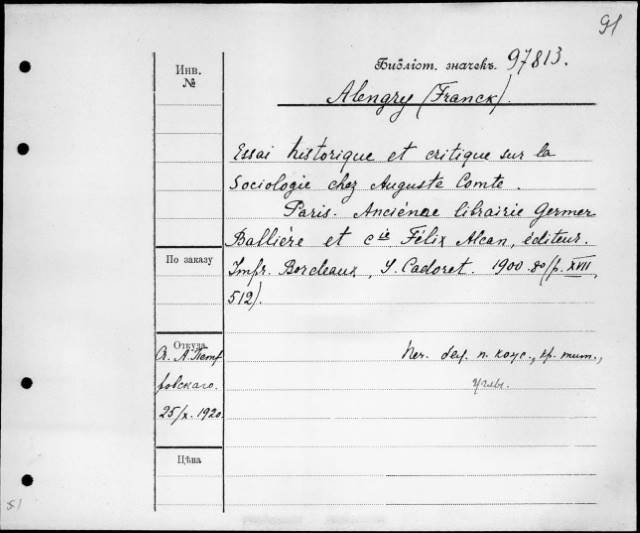 91
Библіот. значекъ. 97813.
Инв.
№
Alengry (Franck).
Essai historique et critique sur la
Sociologie chez Auguste Comte.
Paris. Anciénne librairie Germer
Ballière et Cie Félix Alcan, éditeur.
По заказу
Impr. Bordeaux, Y. Cadoret. 1900. 8º (p. XVII,
512).
Откуда.
А. Петр
ровскаго.
25/X. 1920
Пер. п. тит.,
Цѣна
51